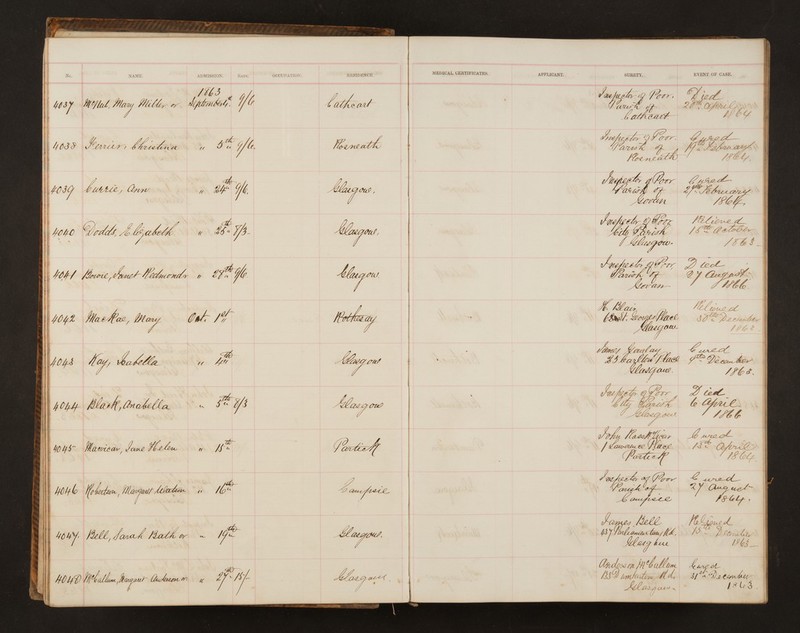 No. NAME. ADMISSION. Rate. OCCUPATION. RESIDENCE. MEDICAL CERTIFICATES. APPLICANT. SURETY. EVENT OF CASE.
1863
4037 Mary Miller or September 9/6 Cathcart Inspector of Poor. Died
Parish of 20th April
Cathcart 1864
4038 Ferrier, Christina " 5th 9/6. Roseneath Inspector of Poor Cured
Parish of 19th February
Roseneath 1864.
4039 Currie, Ann " 24th 9/6. Glasgow. Inspector of Poor Cured
Parish of 27th February
Govan 1864.
4040 Dodds, Elizabeth " 25th 8/3. Glasgow. Inspector of Poor Relieved
City Parish 15th October
Glasgow. 1863.
4041 Bowie, Janet " 29th 9/6 Glasgow Inspector of Poor Died
Parish of 27 August
Govan 1866
4042 MacRae, Mary Oct. 1st Rothesay K. Blair Relieved
St. George's Place 30th December
Glasgow 1863
4043 Kay, Isabella " Glasgow James Cured
33 Carlton Place 9th December
Glasgow. 1863.
4044 Black, Anabella " 5th 8/3 Glasgow Inspector of Poor Died
City Parish 6 April
Glasgow 1866
4045 Jane Helen " 15th Partick John Cured
1 Lawrence Place 15th April
Partick 1864
4046 Robertson, Margaret " 16th Campsie Inspector of Poor Cured
Parish of 27 August
Campsie 1864.
4047 Bell, Sarah or " 19th Glasgow. James Bell Relieved
Parliamentary Rd. 15th December
Glasgow 1863
4048 McCallum, Margaret Anderson or " 27th 15/. Glasgow Anderson McCallum Cured
Dumbarton Rd. 31st December
Glasgow. 1863